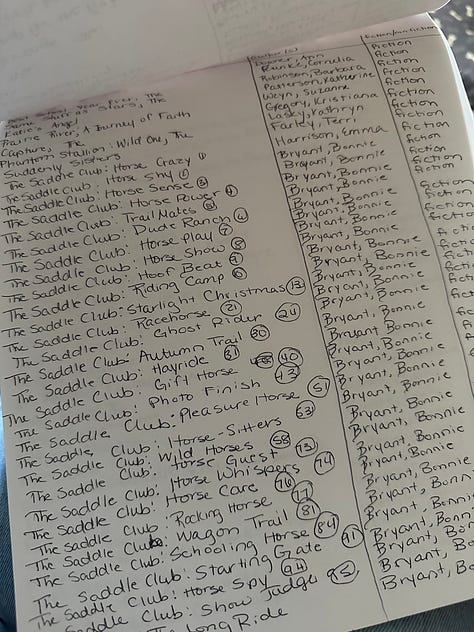 author(s) fiction/nonfiction
Best School Year Ever, The Robinson, Barbara fiction
Same Stuff as Stars, The Paterson, Katherine fiction
Katie's Angel Weyn, Suzanne fiction
Prairie River, A Journey of Faith Gregory, Kristiana fiction
Capture, The Lasky, Kathryn fiction
Phantom Stallion: Wild One, The Farley, Terri fiction
Suddenly Sisters Harrison, Emma fiction
The Saddle Club: Horse Crazy 1 Bryant, Bonnie fiction
The Saddle Club: Horse Shy Bryant, Bonnie fiction
The Saddle Club: Horse Sense 3 Bryant, Bonnie fiction
The Saddle Club: Horse Power 4 Bryant, Bonnie fiction
The Saddle Club: Trail Mates Bryant, Bonnie fiction
The Saddle Club: Dude Ranch 6 Bryant, Bonnie fiction
The Saddle Club: Horse Play 7 Bryant, Bonnie
The Saddle Club: Horse Show 8 Bryant, Bonnie
The Saddle Club: Hoof Beat 9 Bryant, Bonnie
The Saddle Club: Riding Camp Bryant, Bonnie
The Saddle Club: Starlight Christmas 13 Bryant, Bonnie
The Saddle Club: Racehorse 21 Bryant, Bonnie
The Saddle Club: Ghost Rider 24 Bryant, Bonnie
The Saddle Club: Autumn Trail 30 Bryant, Bonnie
The Saddle Club: Hayride 31 Bryant, Bonnie
The Saddle Club: Gift Horse 40 Bryant, Bonnie
The Saddle Club: Photo Finish 43 Bryant, Bonnie
The Saddle Club: Pleasure Horse 51 Bryant, Bonnie
The Saddle Club: Horse-Sitters 53 Bryant, Bonnie
The Saddle Club: Wild Horses 58 Bryant, Bonnie
The Saddle Club: Horse Guest Bryant, Bonnie
The Saddle Club: Horse Whispers 74 Bryant, Bonnie
The Saddle Club: Horse Care 76 Bryant, Bonnie
The Saddle Club: Rocking Horse 77 Bryant, Bonnie
The Saddle Club: Wagon Trail 81 Bryant, Bonnie
The Saddle Club: Schooling Horse 84 Bryant, Bonnie
The Saddle Club: Starting Gate 91 Bryant, Bonnie
The Saddle Club: Horse Spy 94 Bryant, Bonnie
The Saddle Club: Show Judge 95 Bryant, Bo
Long Ride